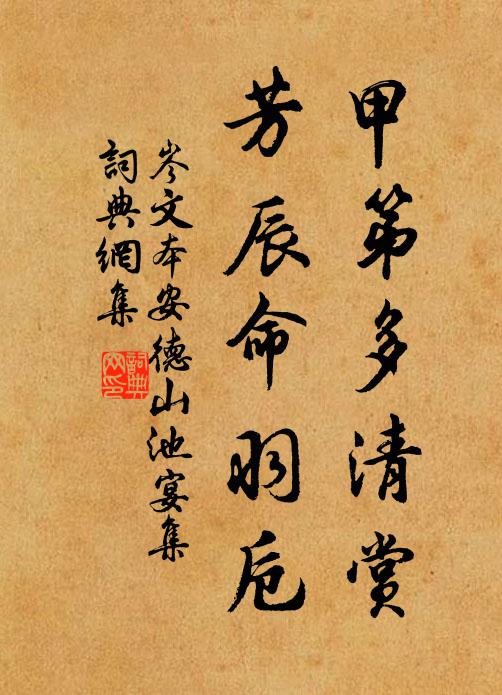 甲第多清賞
芳辰命羽卮
岑文本安德山池宴集
詞典網集
詞典網印